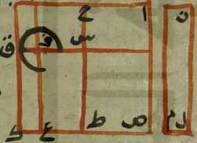 ن ا ح
س و ق
لم ص ط ع ك